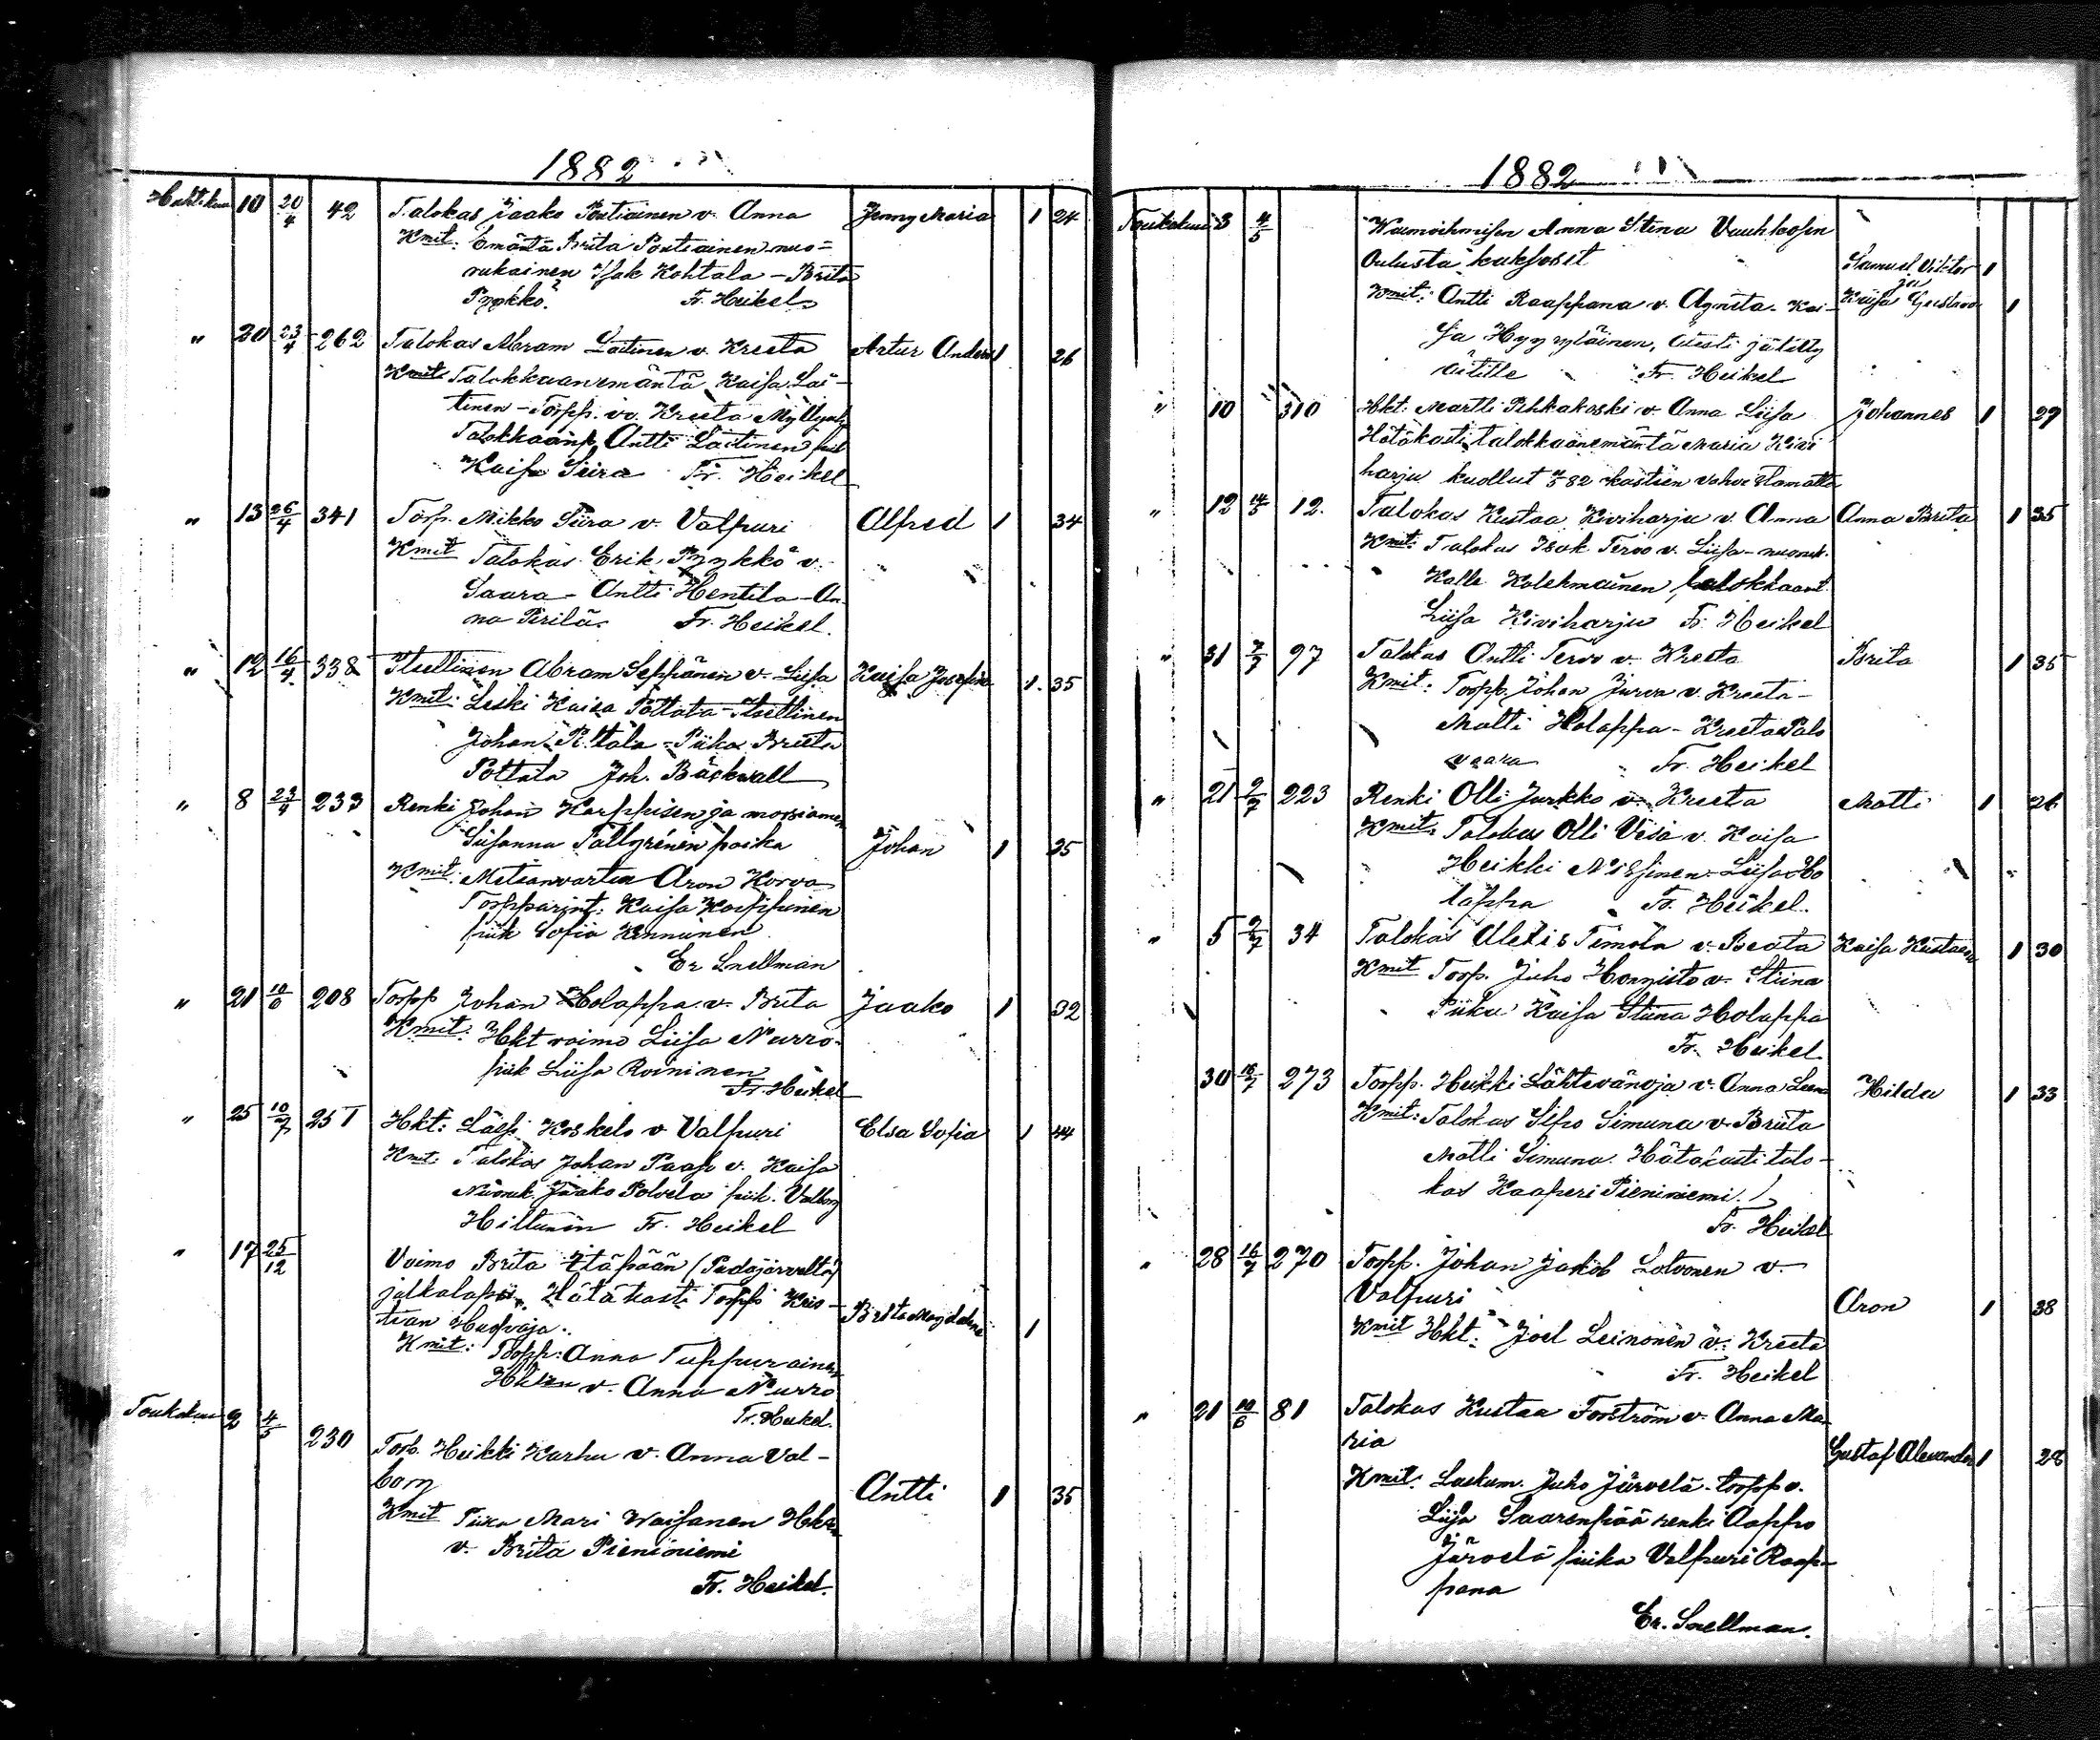 1882
Huhtikuu 10 20/4 42 Talokas Jaako Pentiainen v. Anna Jenny Maria 1 24
Kmit: Emäntä Brita Pentiainen nuo=
rukainen Isak Kohtala - Brita
Pyykkö. Fr. Heikel
" 20 23/4 262 Talokas Abram Laitinen v. Kreeta Artur Anders 1 26
Kmit: Talokkaanemäntä Kaisa Lai-
tinen - Torpp. v. Kreeta Myllyaho
Talokkaanp. Antti Laitinen piik
Kaisa Siira Fr. Heikel
" 13 26/4 341 Torp. Mikko Siira v. Valpuri Alfred 1 34
Kmit Talokas Erik Pyykkö v.
Saara - Antti Hentilä - An-
na Pirilä. Fr. Heikel.
" 12 16/4 338 Itsellinen Abram Seppänen v. Liisa Kaisa Josefina 1 35
Kmit: Leski Kaisa Pottala - Itsellinen
Johan Pottala - Piika Brita
Pottala Joh. Bäckwall
" 8 23/4 233 Renki Johan Karppisen ja morsiamen
Susanna Tallgrenin poika Johan 1 25
Kmit: Metsänvartia Aron Korva
Torpparint: Kaisa Karppinen
piik Sofia Kinnunen
Er Snellman
" 21 10/6 208 Torpp Johan Holappa v. Brita Jaako 1 32
Kmit: Hkt vaimo Liisa Nurro
piik Liisa Roininen
Fr. Heikel
" 25 10/7 251 Hkt: Koskelo v Valpuri Elsa Sofia 1 44
Kmit: Talokas Johan Paaso v. Kaisa
Nuoruk. Jaako Polvela piik. Valborg
Hiltunen Fr. Heikel
" 17 25/12 Vaimo Brita Itäpään (Pudasjärveltä)
jalkalapsi. Hätäkasti Torpp Kris-
tian Huovaja. Brita Magdalena 1
Kmit: Torpp: Anna Tuppurainen
v. Anna Nurro
Fr. Heikel.
Toukokuu 2 4/5 230 Torp. Heikki Karhu v. Anna Val-
borg Antti 1 35
Kmit Piika Mari Waisanen
v. Brita Pieniniemi
Fr. Heikel.
1882
Toukokuu 3 4/5 Waimoihmisen Anna Stina Vauhkosen
Oulusta kaksoset Samuel Viktor 1
ja
Kmit: Antti Raappana v. Agneta. Kai- Kaisa Gustava 1
sa Hyyryläinen, jätetty
äitille Fr. Heikel
" 10 310 Hkt: Martti Pihkakoski v. Anna Liisa Johannes 1 29
Hätäkasti talokkaanemäntä Maria Kivi
harju kuollut 82 kastien vahvistamatta
" 12 14/5 12. Talokas Kustaa Kiviharju v. Anna Anna Brita 1 35
Kmit: Talokas Isak Tervo v. Liisa - nuoruk.
Kalle Kolehmainen, talokkaant.
Liisa Kiviharju Fr. Heikel
" 31 2/7 97 Talokas Antti Tervo v. Kreeta Brita 1 35
Kmit: Torpp. Johan Jurva v. Kreeta -
Matti Holappa - Kreeta Palo
vaara Fr. Heikel
" 21 2/7 223 Renki Olli Jurkko v. Kreeta Matti 1 26
Kmit: Talokas Olli Visa v. Kaisa
Heikki Niskinen - Liisa Ho
lappa Fr. Heikel.
" 5 2/7 34 Talokas Aleksis Timola v. Beata Kaisa Kustaava 1 30
Kmit Torp. Juho Hongisto v. Stiina
Piika Kaisa Stiina Holappa
Fr. Heikel
30 16/7 273 Torpp. Heikki Lähtevänoja v. Anna Leena Hilda 1 33
Kmit: Talokas Sipo Simuna v. Briita
Matti Simuna. Hätäkasti talo-
kas Kaaperi Pieniniemi.
Fr. Heikel
" 28 16/7 270 Torpp. Johan Jakob Lotvonen v.
Valpuri Aron 1 38
Kmit Hkt: Joel Leinonen v. Kreeta
Fr. Heikel
" 21 10/6 81 Talokas Kustaa Forström v. Anna Ma-
ria Gustaf Alexander 1 28
Kmit: Laukum. Juho Järvelä - torpp v.
Liisa Saarenpää renki Aappo
Järvelä piika Valpuri Raap-
pana
Er. Snellman.